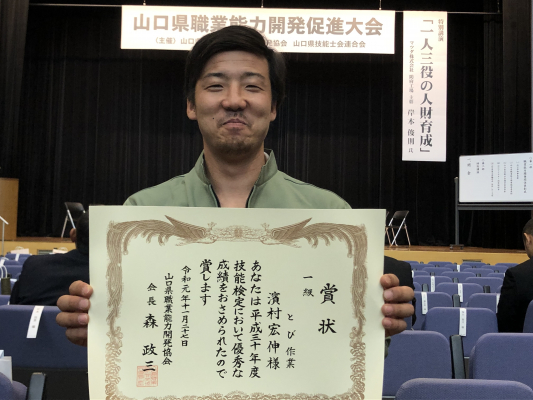 山口県職業能力開発促進大会
特別講演
「一人三役の人財育成」
岸本 俊
賞状
一級 とび作業
濱村宏伸様
あなたは平成三十年度
技能検定において優秀な
成績をおさめられたので
賞します
令和元年十一月二十七日
山口県職業能力開発協会
会長 森 政三